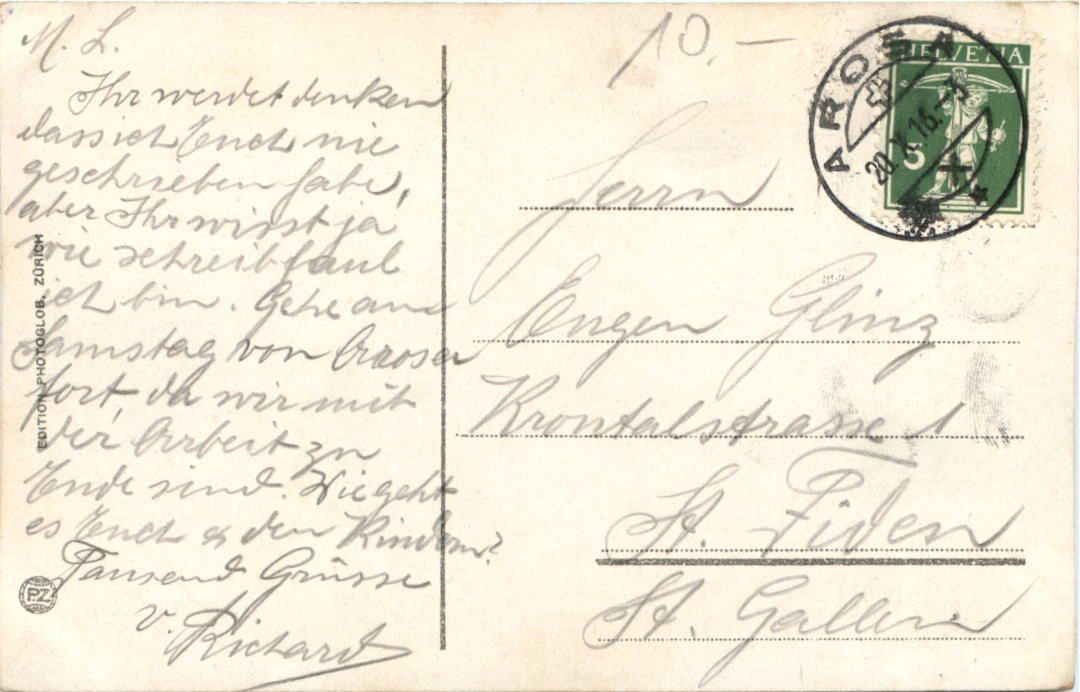 M. L.
Ihr werdet denken
dass ich Euch nie
geschrieben habe,
aber Ihr wisst ja
wie schreibfaul
ich bin. Gehe am
Samstag von Arosa
fort, da wir mit
der Arbeit zu
Ende sind. Wie geht
es Euch & den Kindern?
Tausend Grüsse
v. Richard
EDITION PHOTOGLOB, ZÜRICH
P.Z
10.–
AROSA
20.X.16.–3
X
HELVETIA
5
Herrn
Eugen Glinz
Krontalstrasse 1
St. Fiden
St. Gallen